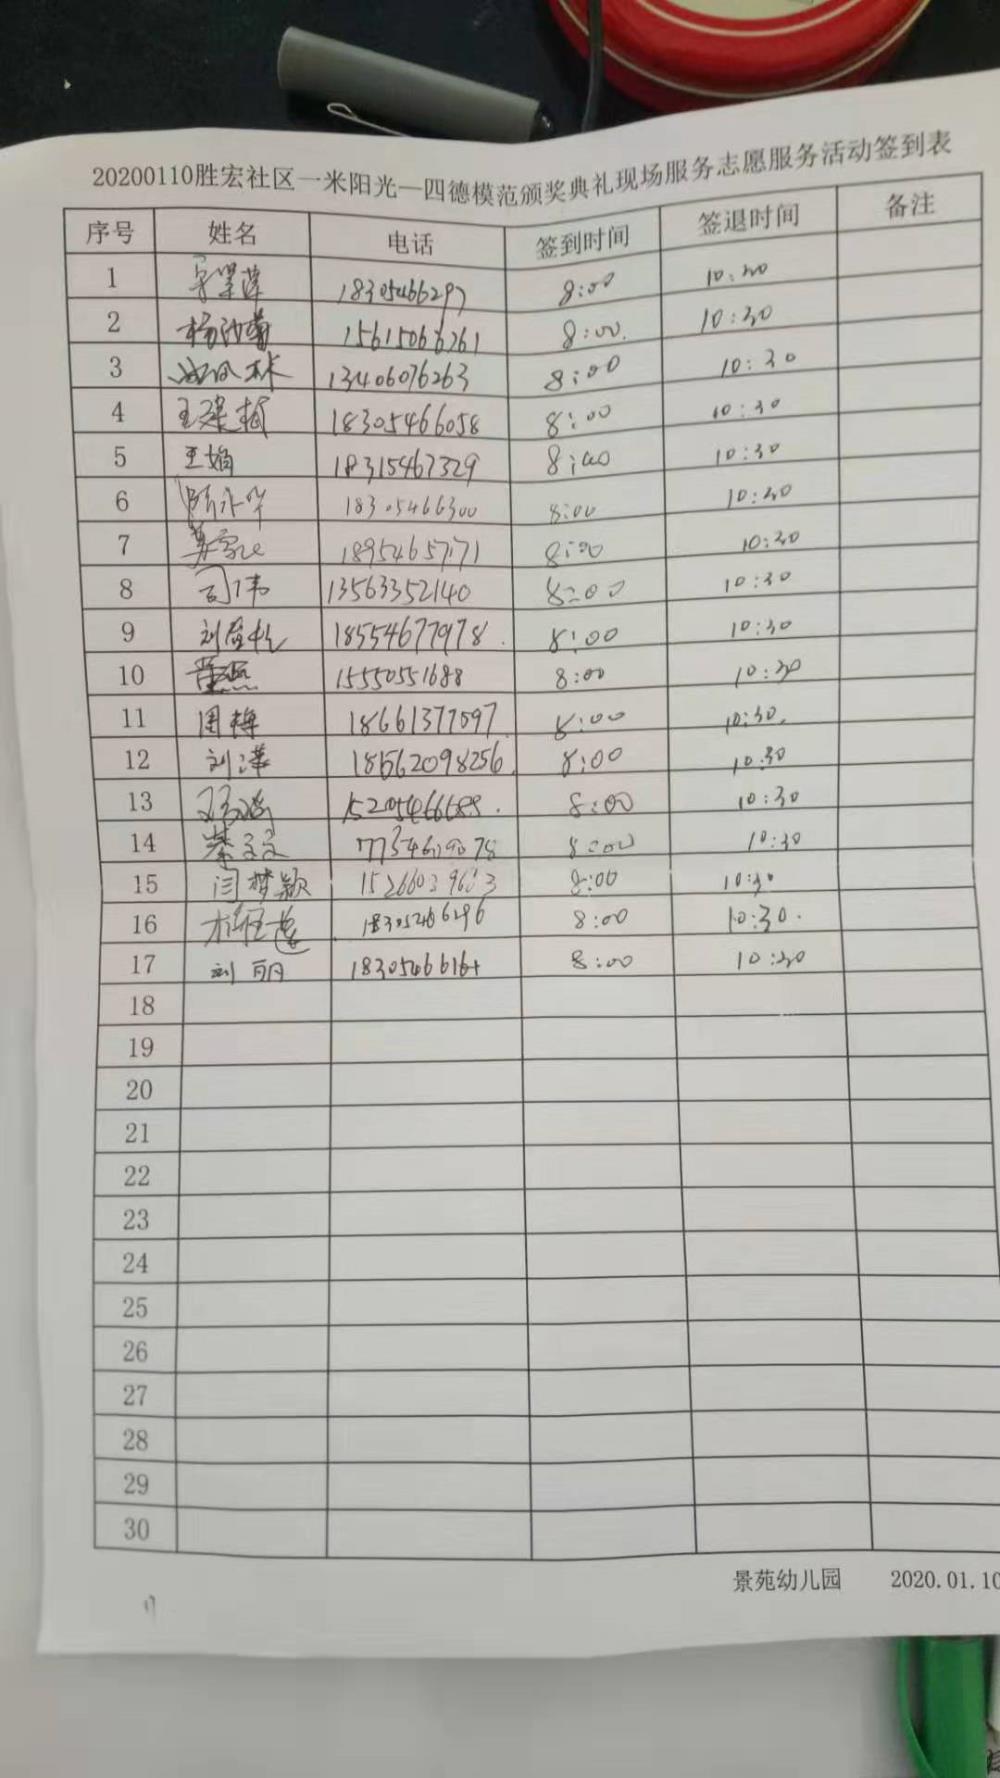 20200110胜宏社区一米阳光—四德模范颁奖典礼现场服务志愿服务活动签到表
序号 姓名 电话 签到时间 签退时间 备注
1 18305466297 8:00 10:30
2 15615066261 8:00. 10:30
3 13406076263 8:00 10:30
4 王建梅 18305466058 8:00 10:30
5 王娟 18315467329 8:00 10:30
6 18305466300 8:00 10:30
7 18954657171 8:00 10:30
8 司伟 13563352140 8:00 10:30
9 18554677978. 8:00 10:30
10 董燕 15550551688 8:00 10:30
11 周梅 18661377597 8:00 10:30.
12 刘洋 18562098256. 8:00 10:30
13 8:00 10:30
14 8:00 10:30
15 闫梦颖 8:00 10:30
16 18305466296 8:00 10:30.
17 刘丽 8:00 10:30
18
19
20
21
22
23
24
25
26
27
28
29
30
景苑幼儿园 2020.01.10